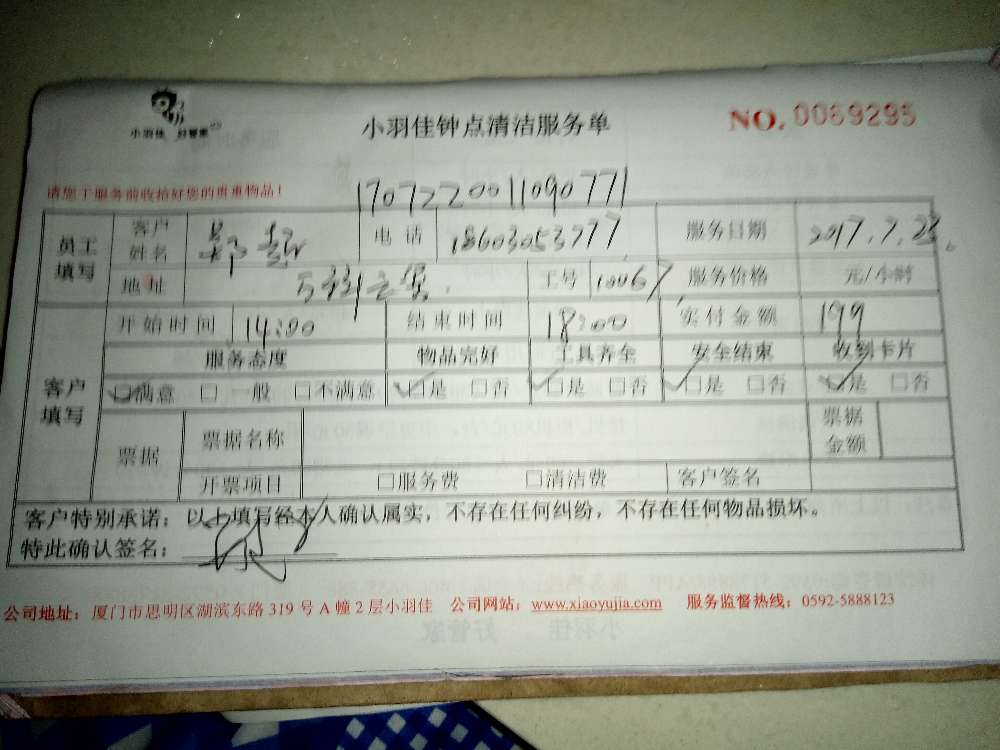 小羽佳 好管家
小羽佳钟点清洁服务单
NO. 0069295
请您于服务前收拾好您的贵重物品！
170722001109077
员工填写 客户姓名 电话 18603053777 服务日期 2017.7.23.
地址 工号 10067 服务价格 元/小时
客户填写 开始时间 14:00 结束时间 18:00 实付金额 199
服务态度 物品完好 工具齐全 安全结束 收到卡片
☑满意 □一般 □不满意 ☑是 □否 ☑是 □否 ☑是 □否 ☑是 □否
票据 票据名称 票据金额
开票项目 □服务费 □清洁费 客户签名
客户特别承诺：以上填写经本人确认属实，不存在任何纠纷，不存在任何物品损坏。
特此确认签名：
公司地址：厦门市思明区湖滨东路 319 号 A 幢 2 层小羽佳 公司网站：www.xiaoyujia.com 服务监督热线：0592-5888123